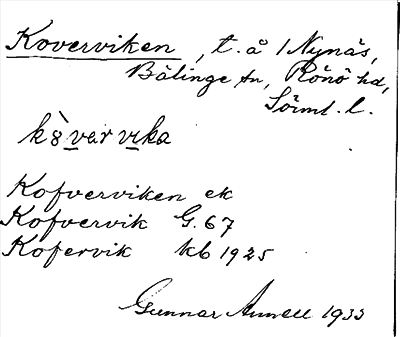 Koverviken, t. å 1 Nynäs,
Bälinge sn, Rönö hd,
Söiml. l.
kȣ̀var vika
Kofverviken ek
Kofvervik G. 67
Kofervik kb 1925
Gunnar Annell 1933